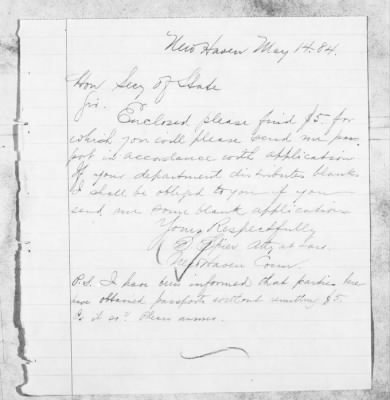 New Haven May 14. 84.
Hon Secy of State
Sir.
Enclosed please find $5 for
which you will please send me pass
port in accordance with application
If your department distributes blanks
I shall be obliged to you if you
send me some blank applications
Yours Respectfully
Atty at Law
New Haven Conn.
P.S. I have been informed that parties here
have obtained passports without remitting $5.
Is it so? Please answer.